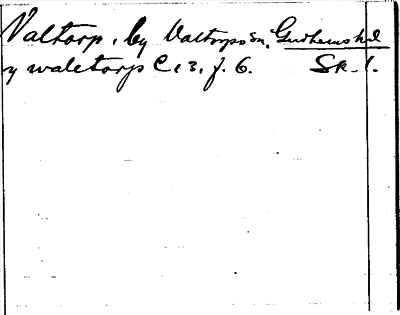 Valtorp, by Valtorps sn. Gudhems hd
y waletorp C 13, f. 6. Sk. 1.